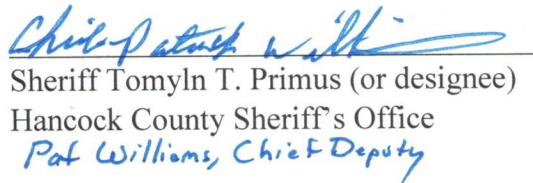 Chief Patrick Williams
Sheriff Tomyln T. Primus (or designee)
Hancock County Sheriff's Office
Pat Williams, Chief Deputy